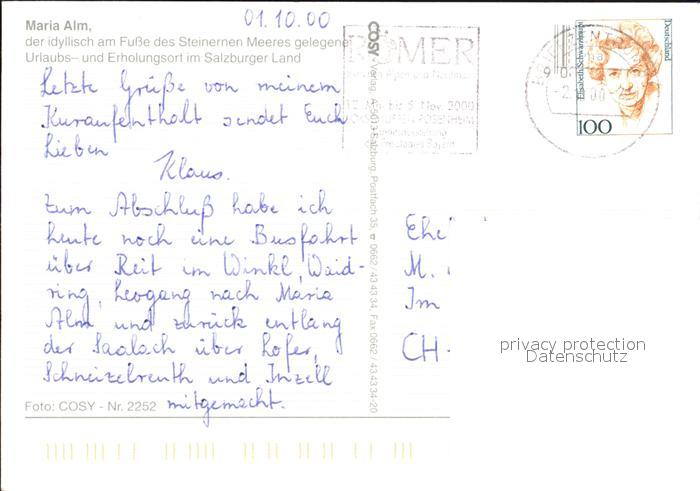 01.10.00
Maria Alm,
der idyllisch am Fuße des Steinernen Meeres gelegene
Urlaubs– und Erholungsort im Salzburger Land
Letzte Grüße von meinem
Kuraufenthalt sendet Euch
Lieben
Klaus.
Zum Abschluß habe ich
heute noch eine Busfahrt
über Reit im Winkl, Waid-
ring, Leogang nach Maria
Alm und zurück entlang
der Saalach über Lofer,
Schneizelreuth und Inzell
mitgemacht.
Foto: COSY - Nr. 2252
COSY-Verlag, Salzburg, Postfach 35, 0662 / 43 43 34, Fax 0662 / 43 43 34-20
RÖMER
bis 5. Nov. 2000
Elisabeth Schwarzhaupt
Deutschland
100
Ehe
M.
Im
CH-
privacy protection
Datenschutz